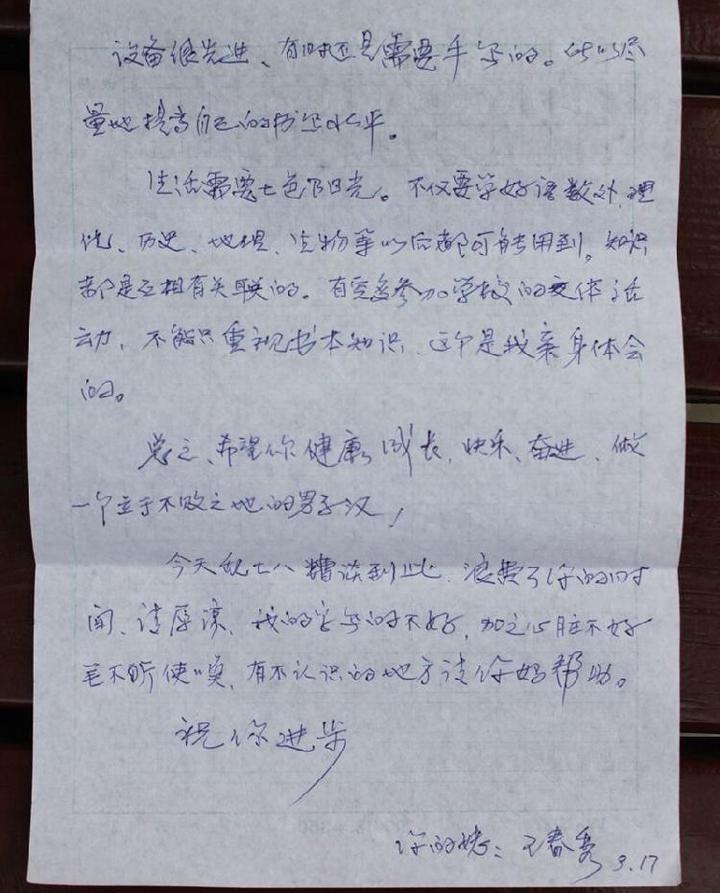 设备很先进、有时还是需要手写的。所以尽
量地提高自己的书写水平。
生活需要七色阳光。不仅要学好语数外、理
化、历史、地理、生物等以后都可能用到。知识
都是互相有关联的。有空多参加学校的文体活
动，不能只重视书本知识，这个是我亲身体会
的。
总之、希望你健康成长、快乐、奋进、做
一个立于不败之地的男子汉！
今天乱七八糟谈到此、浪费了你的时
间、请原谅、我的字写的不好，加之心脏不好
笔不听使唤、有不认识的地方请你妈帮助。
祝你进步
你的姥：王春秀 9.17